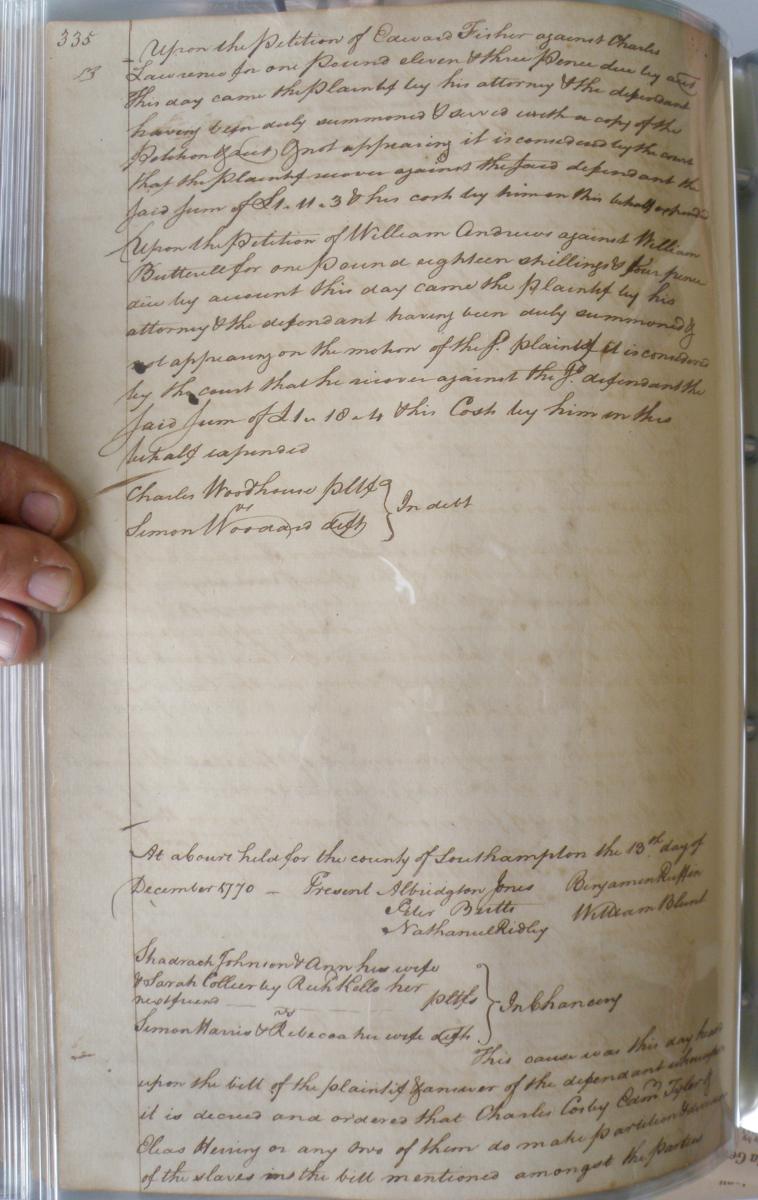 335
Upon the Petition of Edward Fisher against Charles
Lawrence for one Pound eleven & three Pence due by acct
This day came the plaintif by his attorney & the defendant
having been duly summoned & served with a copy of the
Petition & acct, & not appearing it is considered by the court
that the plaintif recover against the said defendant the
said sum of £1.11.3 & his costs by him in this behalf expended
Upon the Petition of William Andrews against William
Butterell for one Pound eighteen shillings & four pence
due by account this day came the plaintif by his
attorney & the defendant having been duly summoned &
not appearing on the motion of the sd. plaintif it is considered
by the court that he recover against the sd. defendant the
said sum of £1.18.4 & his Costs by him in this
behalf expended
Charles Woodhouse pltf
vs
In debt
Simon Woodard deft
At a Court held for the county of Southampton the 13th day of
December 1770 — Present Albridgton Jones Benjamin Ruffin
Peter Butts William Blunt
Nathaniel Ridley
Shadrach Johnson & Ann his wife
& Sarah Collier by Rich Kello her
next friend pltfs
vs
In Chancery
Simon Harris & Rebecca his wife defts
This cause was this day heard
upon the bill of the plaintif & answer of the defendant whereupon
it is decreed and ordered that Charles Cosby Edmd Tyler &
Elias Herring or any two of them do make partition &
of the slaves in the bill mentioned amongst the parties